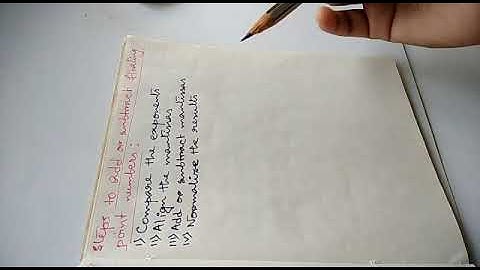 Steps to add or subtract floating
point numbers:
i) Compare the exponents
ii) Align the mantissas
iii) Add or subtract mantissas
iv) Normalize the results